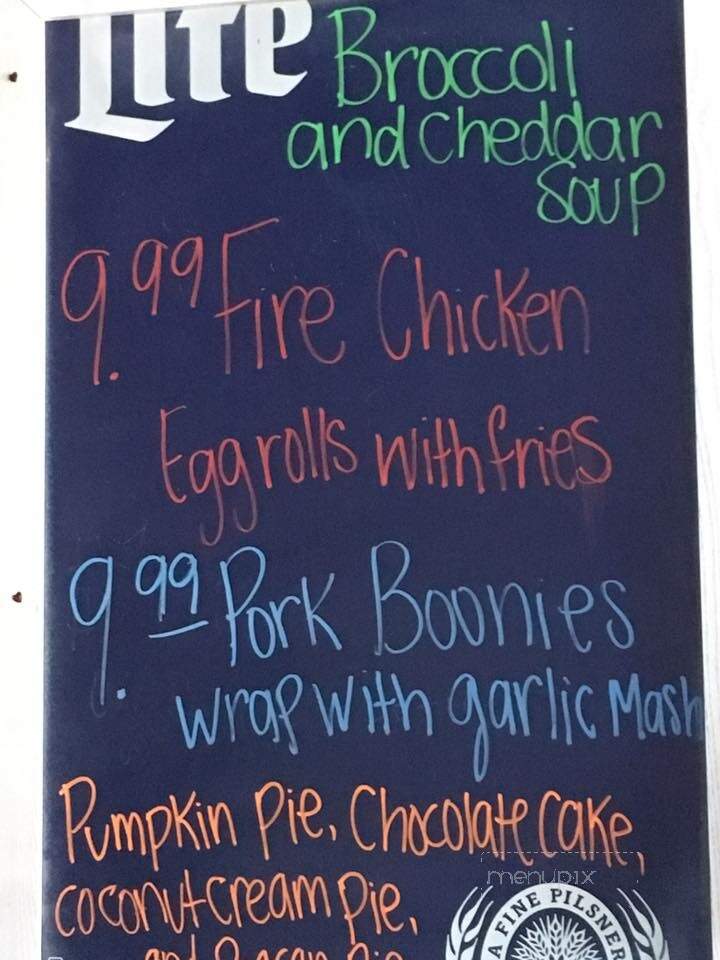 Lite
Broccoli
and Cheddar
Soup
9.99 Fire Chicken
Eggrolls with fries
9.99 Pork Boonies
wrap with garlic Mash
Pumpkin Pie, Chocolate Cake,
coconut cream pie,
menupix
A FINE PILSNER
and Pecan Pie